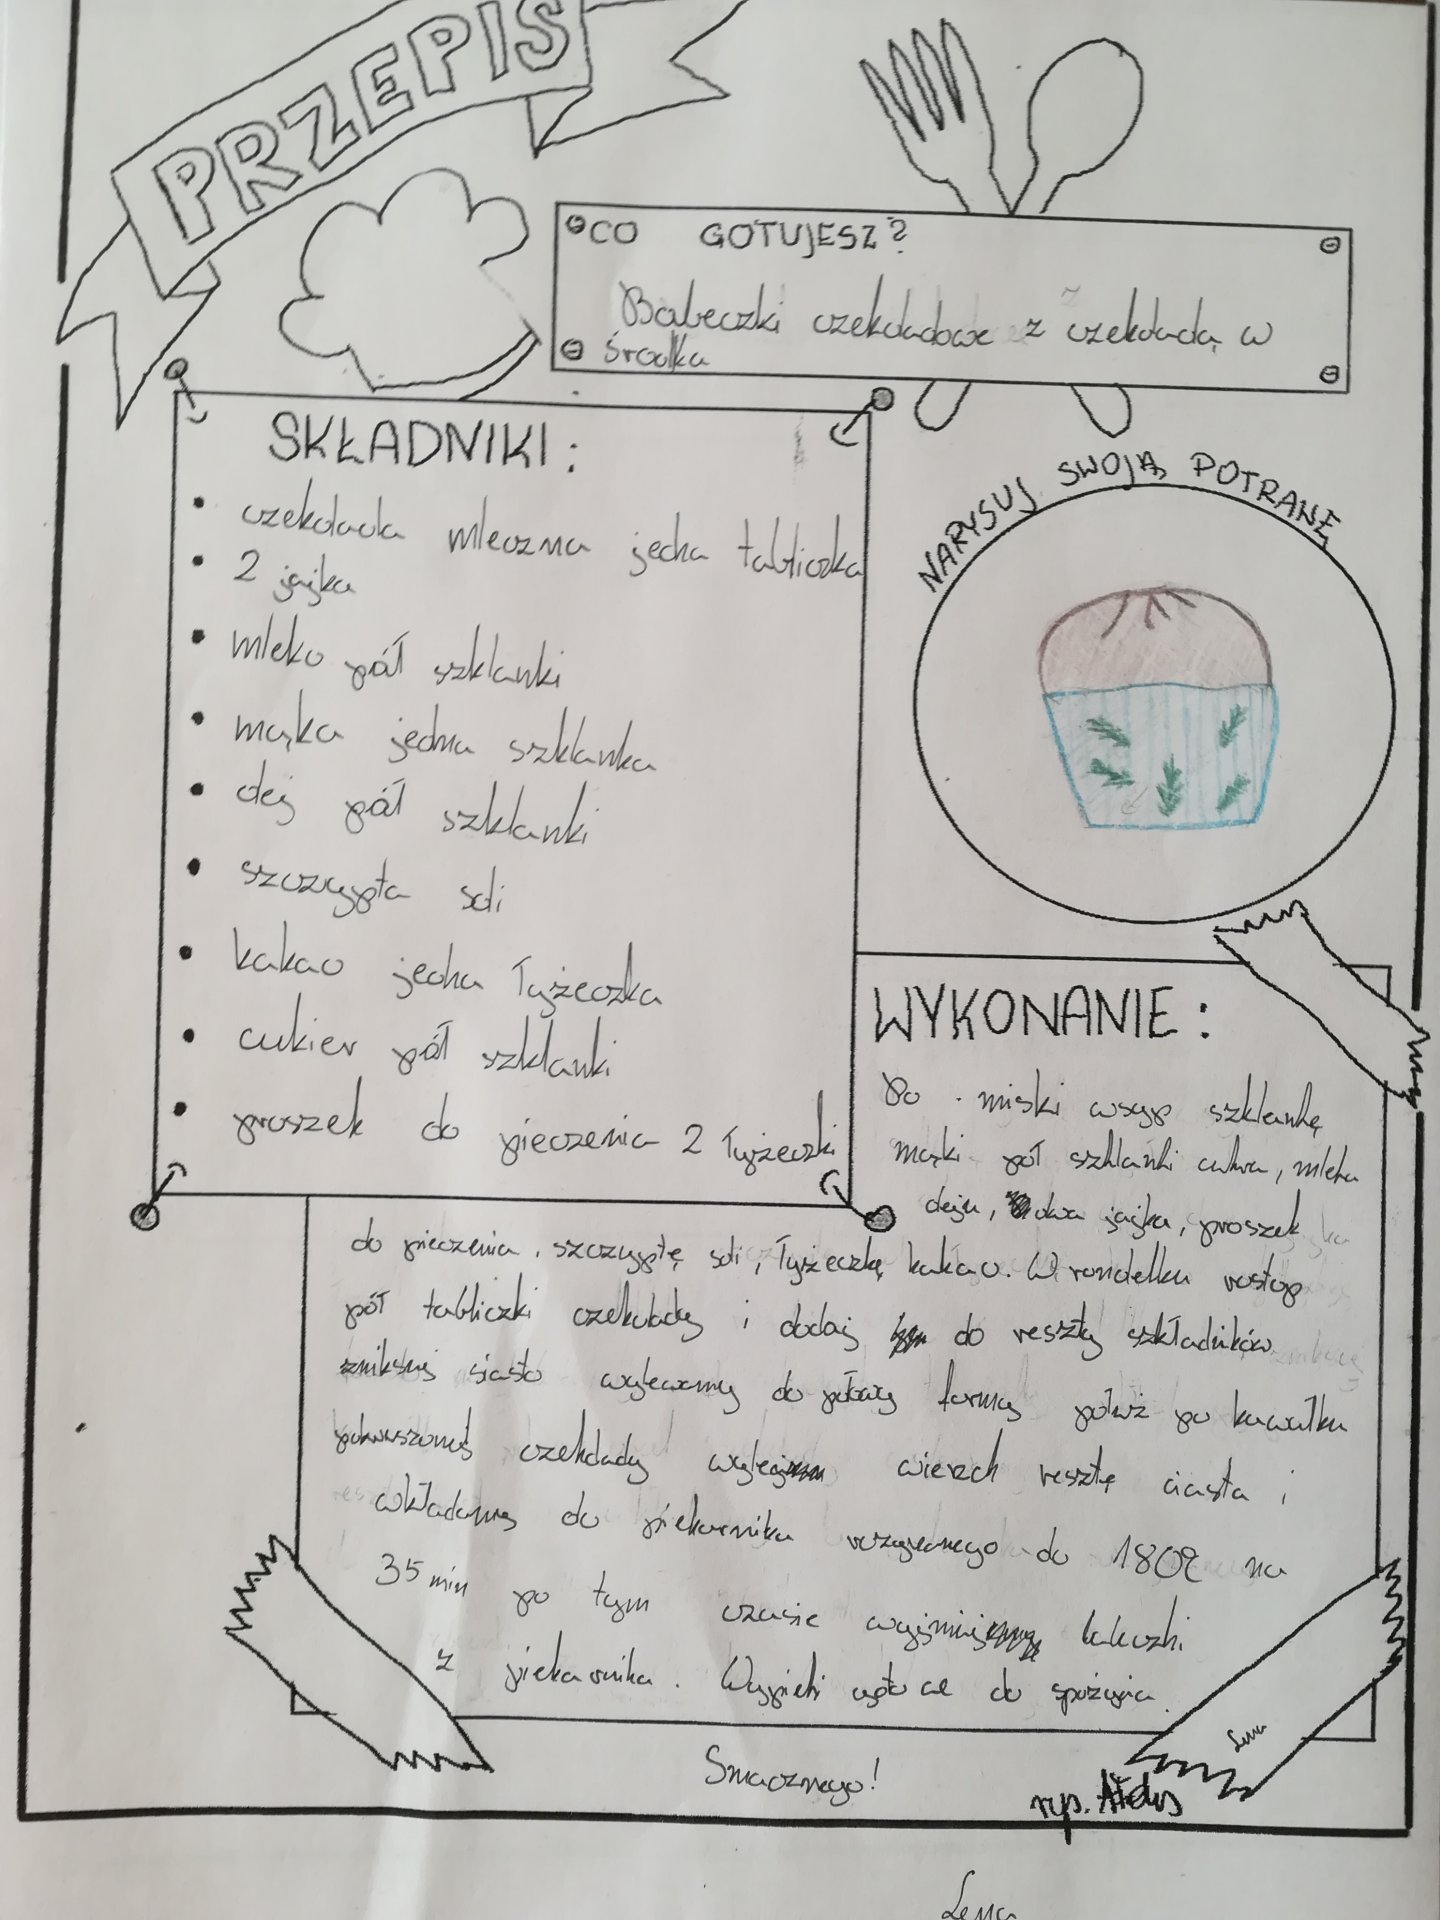 PRZEPIS
CO GOTUJESZ?
Babeczki czekoladowe z czekoladą w
środku
SKŁADNIKI:
• czekolada mleczna jedna tabliczka
• 2 jajka
• mleko pół szklanki
• mąka jedna szklanka
• olej pół szklanki
• szczypta soli
• kakao jedna łyżeczka
• cukier pół szklanki
• proszek do pieczenia 2 łyżeczki
NARYSUJ SWOJĄ POTRAWĘ
WYKONANIE:
Do miski wsyp szklankę
mąki pół szklanki cukru, mleka
oleju, dwa jajka, proszek
do pieczenia, szczyptę soli, łyżeczkę kakao. W rondelku rostop
pół tabliczki czekolady i dodaj do reszty szkładników
zmiksuj ciasto wylewamy do połowy formy połuż po kawałku
pokruszonej czekolady wylej wierzch resztę ciasta i
wkładamy do piekarnika rozgrzanego do 180° na
35 min po tym czasie wyjmij babeczki
z piekarnika. Wypieki gotowe do spożycia.
Smacznego!
Lena
rys.
Lena